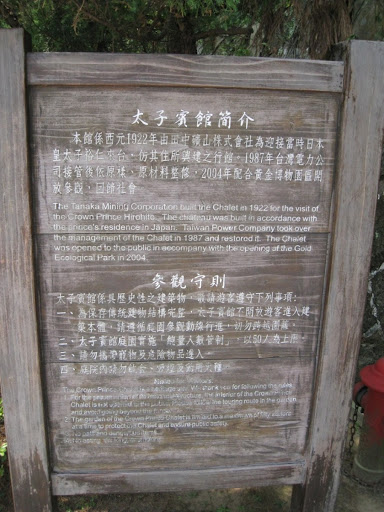 太子賓館簡介
本館係西元1922年由田中礦山株式會社為迎接當時日本
皇太子裕仁來台，仿其住所興建之行館，1987年台灣電力公
司接管後依原樣、原材料整修，2004年配合黃金博物園區開
放參觀，回饋社會
The Tanaka Mining Corporation built the Chalet in 1922 for the visit of
the Crown Prince Hirohito. The chateau was built in accordance with
the prince's residence in Japan. Taiwan Power Company took over
the management of the Chalet in 1987 and restored it. The Chalet
was opened to the public in accompany with the opening of the Gold
Ecological Park in 2004.
參觀守則
太子賓館係具歷史性之建築物，敬請遊客遵守下列事項：
一、為保存傳統建物結構完整，太子賓館不開放遊客進入建
築本體，請遵循庭園參觀動線行進，請勿跨越圍籬。
二、太子賓館庭園實施「總量人數管制」，以50人為上限。
三、請勿攜帶寵物及危險物品進入。
四、庭院內請勿
The Crown Prince
for following the rules
the interior of the Crown
Chalet is
the touring route in the garden
and avoid going beyond the
The garden of the Crown Prince Chalet is limited to a maximum of fifty
at a time to protect the Chalet and ensure public safety.